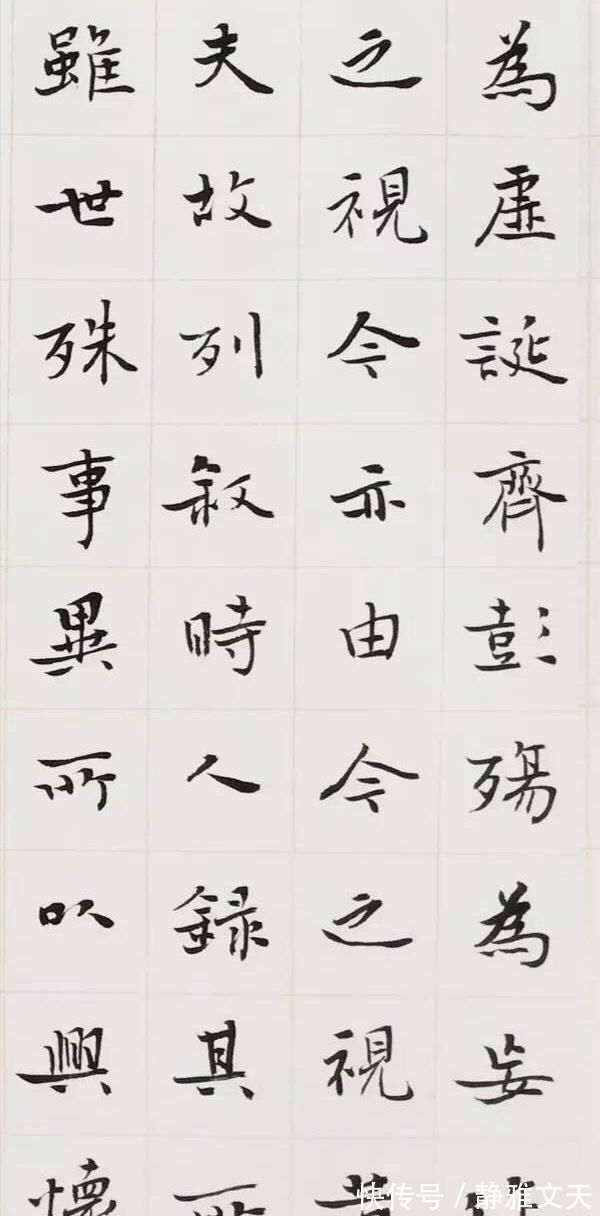 為虛誕齊彭殤為妄
之視今亦由今之視
夫故列叙時人錄其
雖世殊事異所以興懷
快传号 / 静雅文天